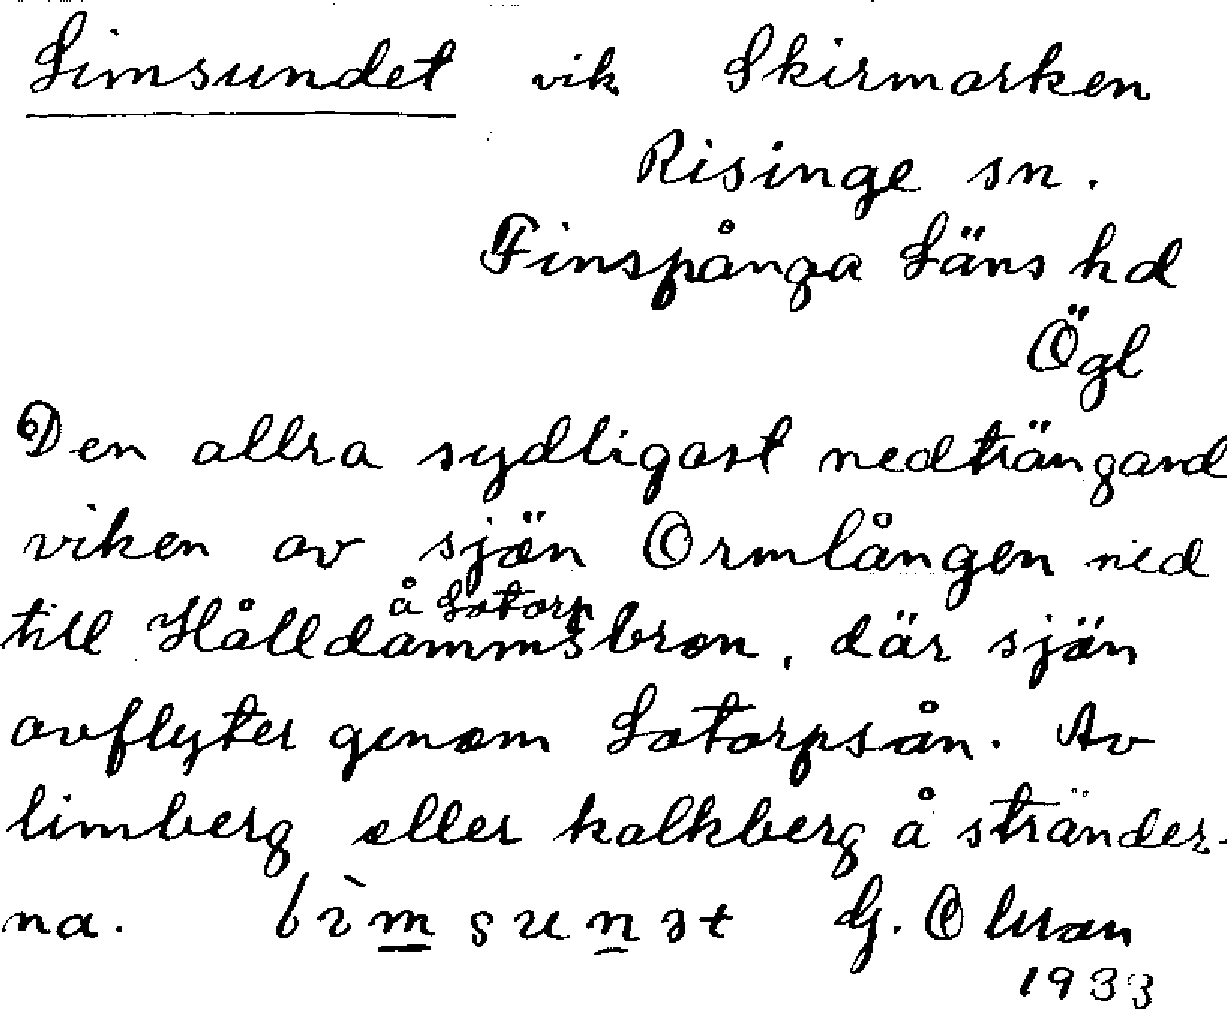 Limsundet vik Skirmarken
Risinge sn.
Finspånga Läns hd
Ögl
Den allra sydligast nedträngand
viken av sjön Ormlången ned
å Lotorp
till Hålldammsbron, där sjön
avflyter genom Lotorpsån. Av
limberg eller kalkberg å stränder-
na. G. Olsson
1933